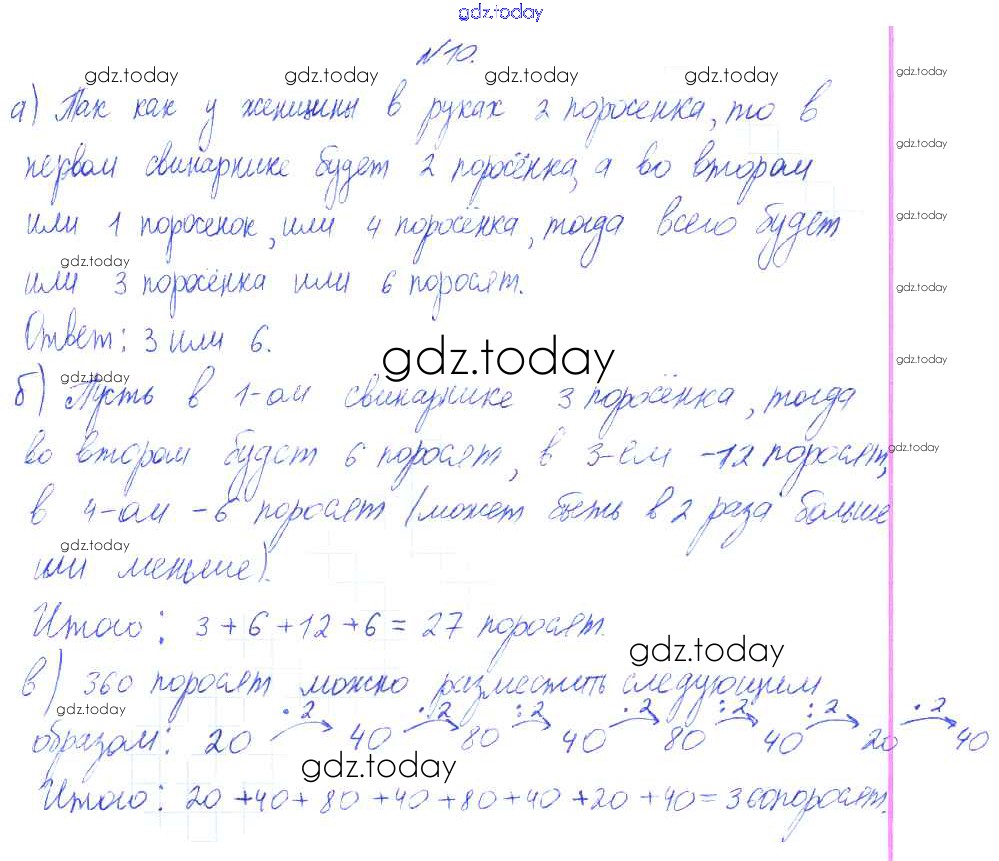 gdz.today
№10.
gdz.today gdz.today gdz.today gdz.today gdz.today
а) Так как у женщины в руках 2 поросенка, то в
gdz.today
первом свинарнике будет 2 поросёнка, а во втором
gdz.today
или 1 поросенок, или 4 поросёнка, тогда всего будет
gdz.today
gdz.today
или 3 поросёнка или 6 поросят.
gdz.today
Ответ: 3 или 6.
gdz.today
gdz.today
gdz.today
б) Пусть в 1-ом свинарнике 3 поросёнка, тогда
во втором будет 6 поросят, в 3-ем -12 поросят,
gdz.today
в 4-ом -6 поросят (может быть в 2 раза больше
gdz.today
или меньше).
Итого: 3+6+12+6=27 поросят.
gdz.today
в) 360 поросят можно разместить следующим
gdz.today
·2 ·2 :2 ·2 :2 :2 ·2
образом: 20 40 80 40 80 40 20 40
gdz.today
Итого: 20+40+80+40+80+40+20+40=360поросят.